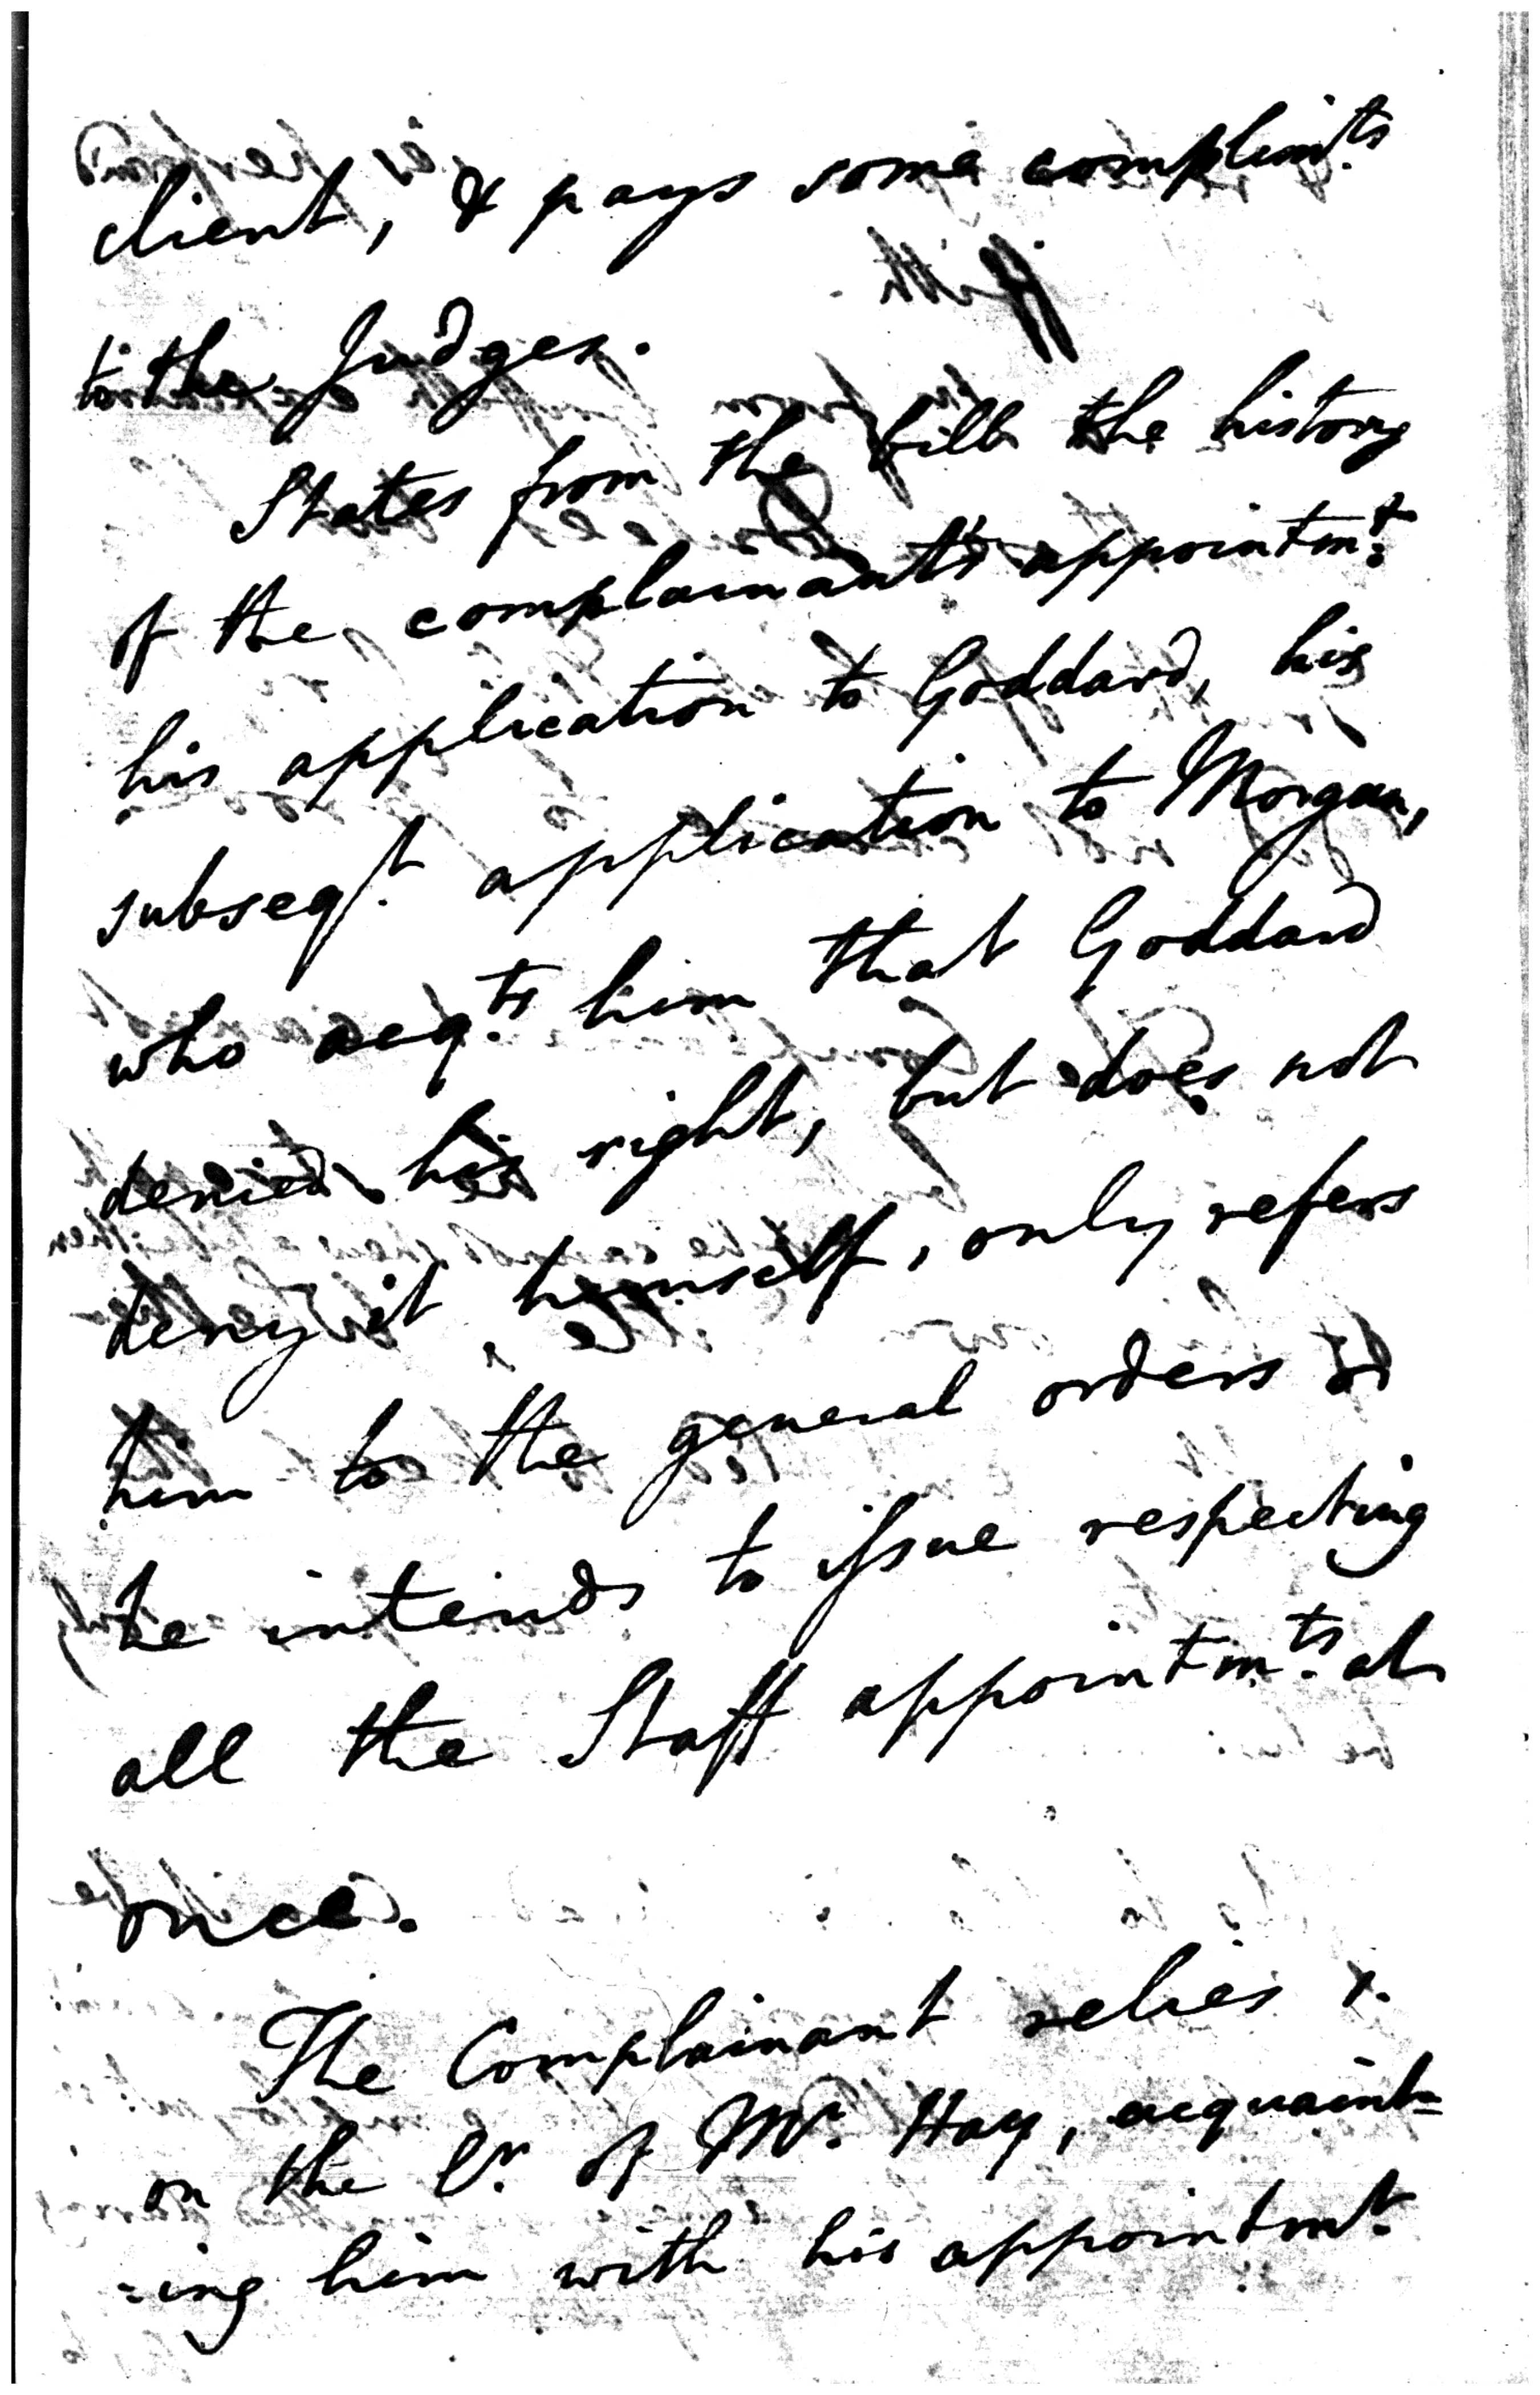 client, & pays some complim.ts
to the Judges.
States from the bill the history
of the complainant's appointm.t
his application to Goddard, his
subseq.t application to Morgan,
who acq.ts him that Goddard
denied his right, but does not
deny it himself, only refers
him to the general orders
he intends to issue respecting
all the Staff appointm.ts at
once.
The Complainant relies
on the of Mr. Hay, acquaint=
=ing him with his appointm.t